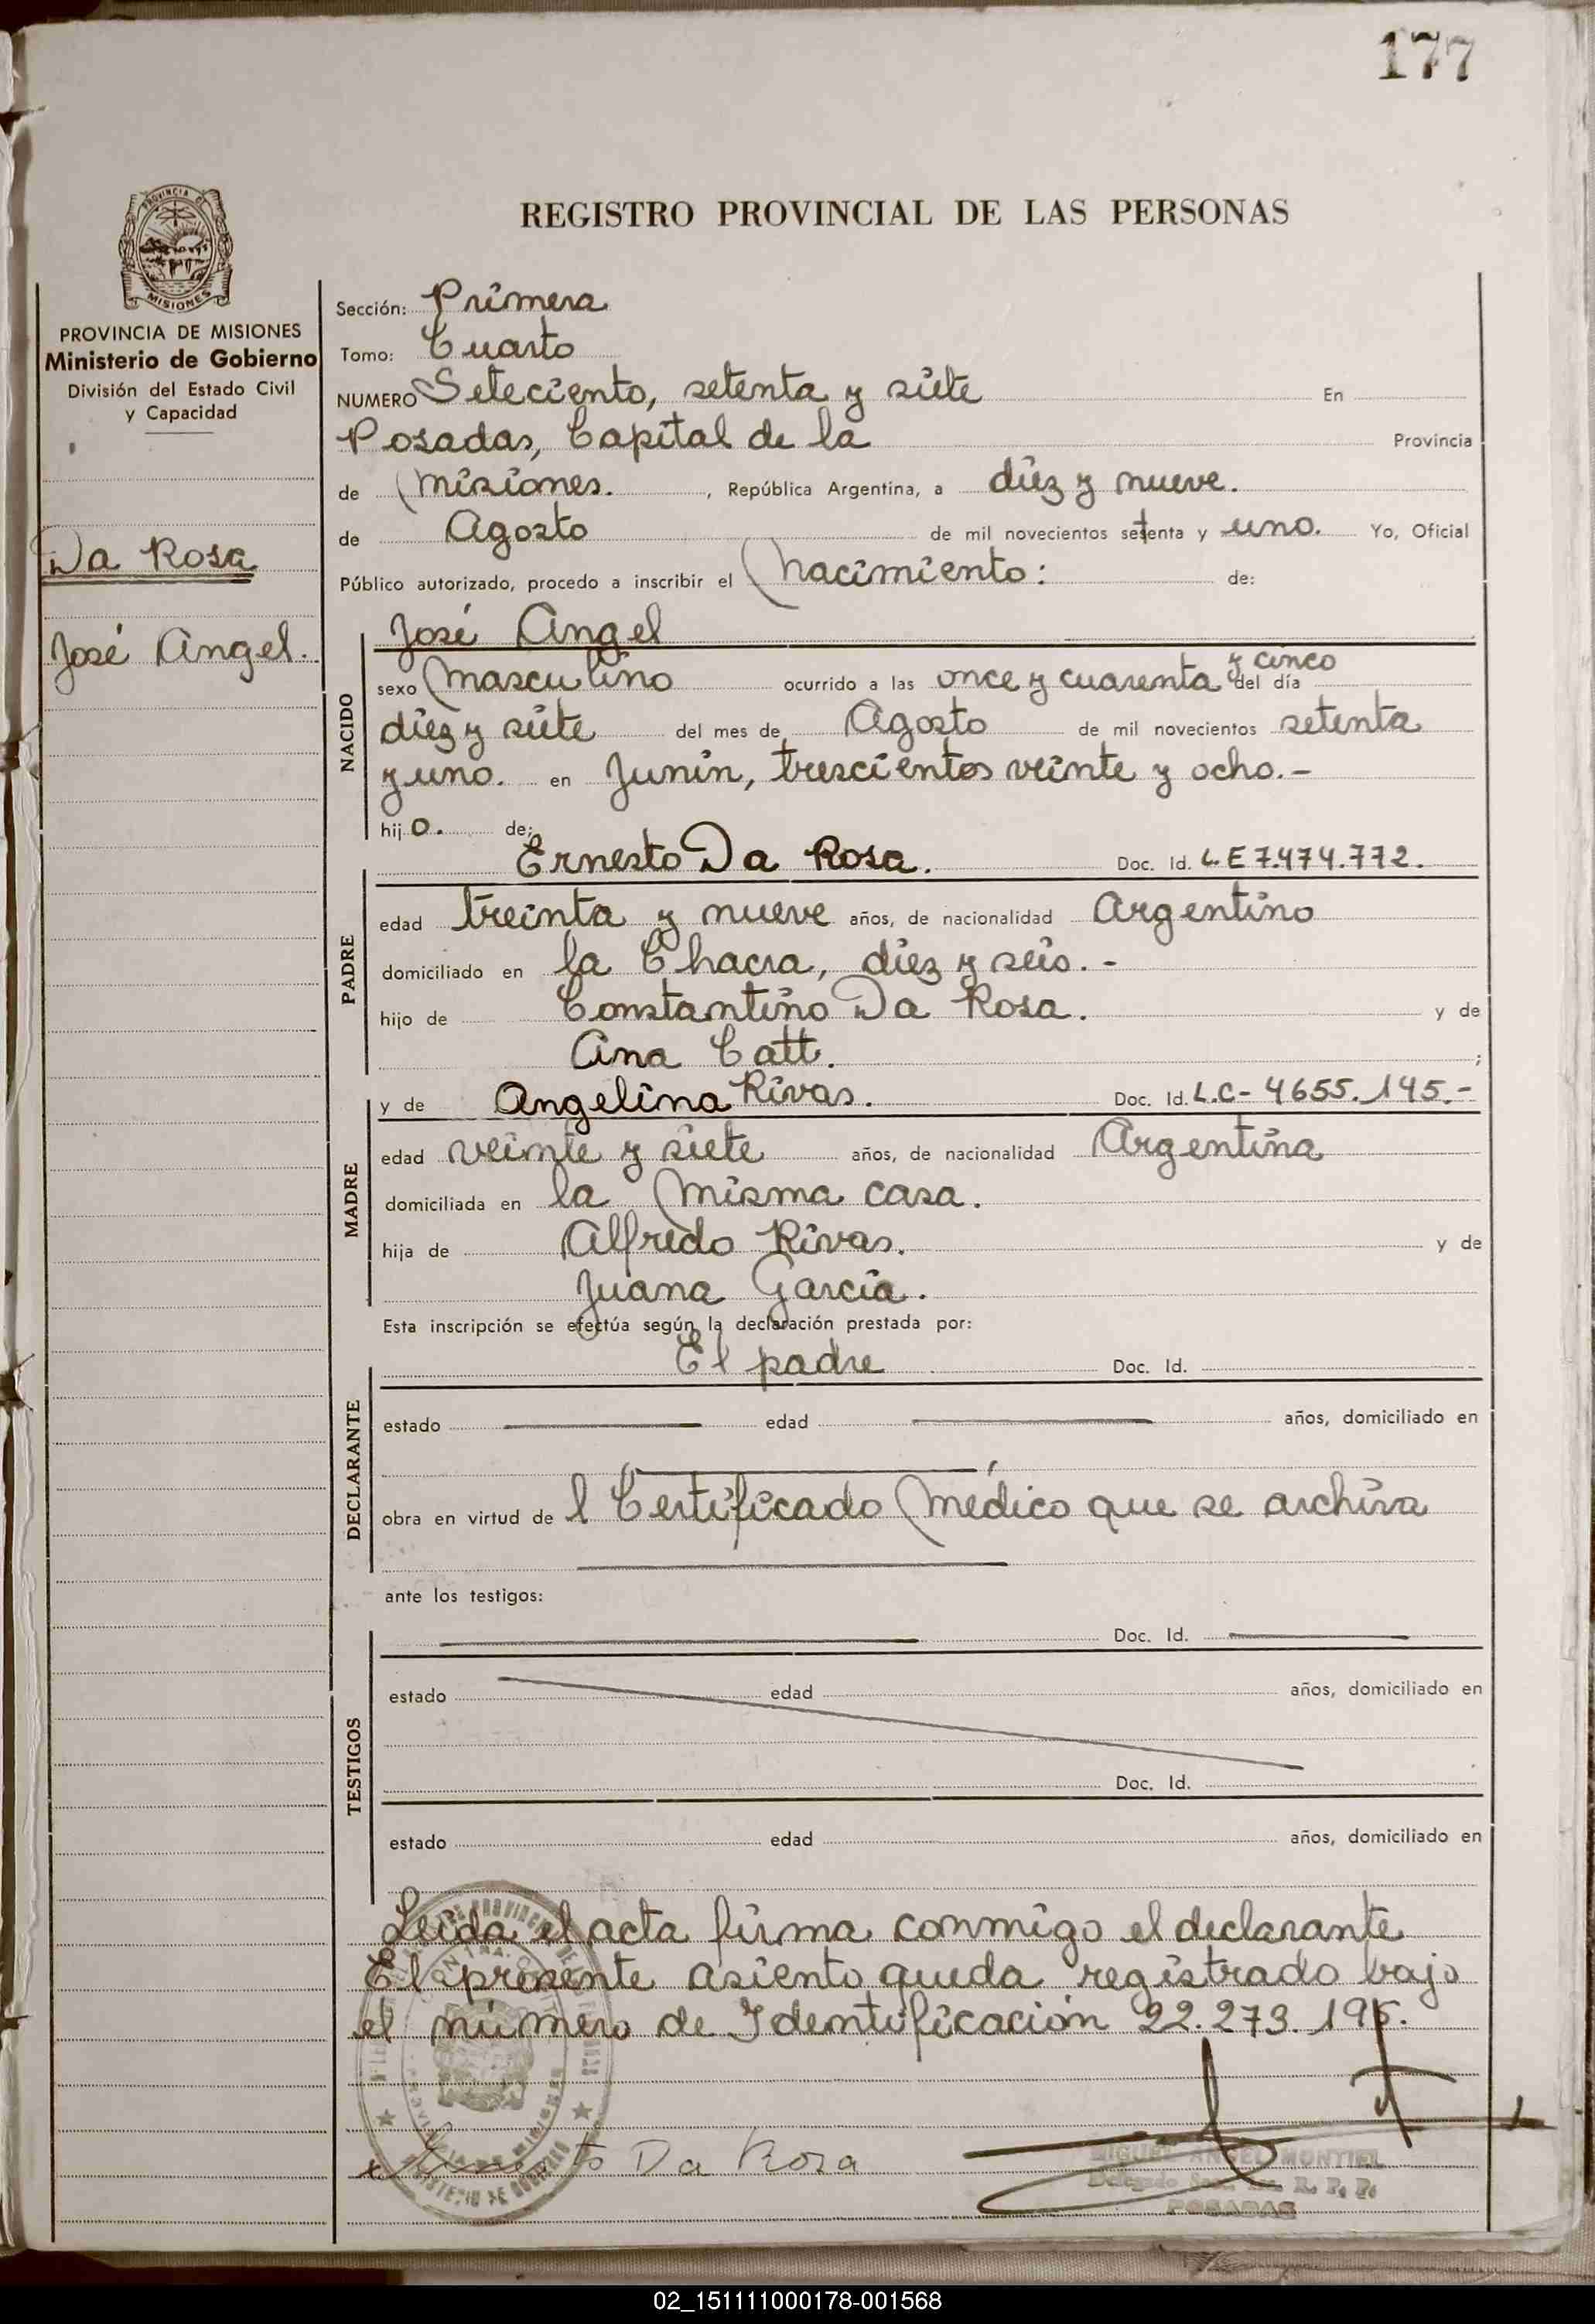 177
PROVINCIA DE
MISIONES
PROVINCIA DE MISIONES
Ministerio de Gobierno
División del Estado Civil
y Capacidad
Da Rosa
José Angel.
REGISTRO PROVINCIAL DE LAS PERSONAS
Sección: Primera
Tomo: Cuarto
NUMERO Seteciento, setenta y siete En
Posadas, Capital de la Provincia
de Misiones. , República Argentina, a diez y nueve.
de Agosto de mil novecientos setenta y uno. Yo, Oficial
Público autorizado, procedo a inscribir el Nacimiento: de:
NACIDO
José Angel
y cinco
sexo Masculino ocurrido a las once y cuarenta del día
diez y siete del mes de Agosto de mil novecientos setenta
y uno. en Junín, trescientos veinte y ocho.-
hijo. de:
PADRE
Ernesto Da Rosa. Doc. Id. L.E 7.474.772.
edad treinta y nueve años, de nacionalidad Argentino
domiciliado en la Chacra, diez y seis.-
hijo de Constantino Da Rosa. y de
Ana Catt. ;
MADRE
y de Angelina Rivas. Doc. Id. L.C- 4655.145.-
edad veinte y siete años, de nacionalidad Argentina
domiciliada en la Misma casa.
hija de Alfredo Rivas. y de
Juana García.
Esta inscripción se efectúa según la declaración prestada por:
DECLARANTE
El padre Doc. Id.
estado edad años, domiciliado en
obra en virtud de l Certificado Médico que se archiva
ante los testigos:
TESTIGOS
Doc. Id.
estado edad años, domiciliado en
Doc. Id.
estado edad años, domiciliado en
Leida el acta firma conmigo el declarante
El presente asiento queda registrado bajo
el número de Identificación 22.273.195.
Ernesto Da Rosa
MIGUEL ANGEL MONTIEL
Delegado R. P. P.
POSADAS
02_151111000178-001568